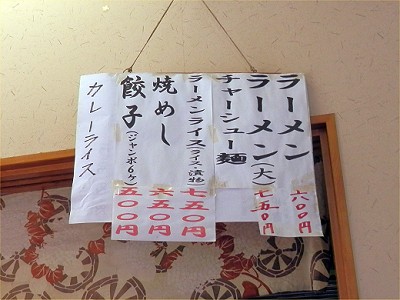 ラーメン 六〇〇円
ラーメン(大) 七五〇円
チャーシュー麺
ラーメンライス(ライス・漬物) 七五〇円
焼めし 六五〇円
餃子(ジャンボ6ヶ) 五〇〇円
カレーライス